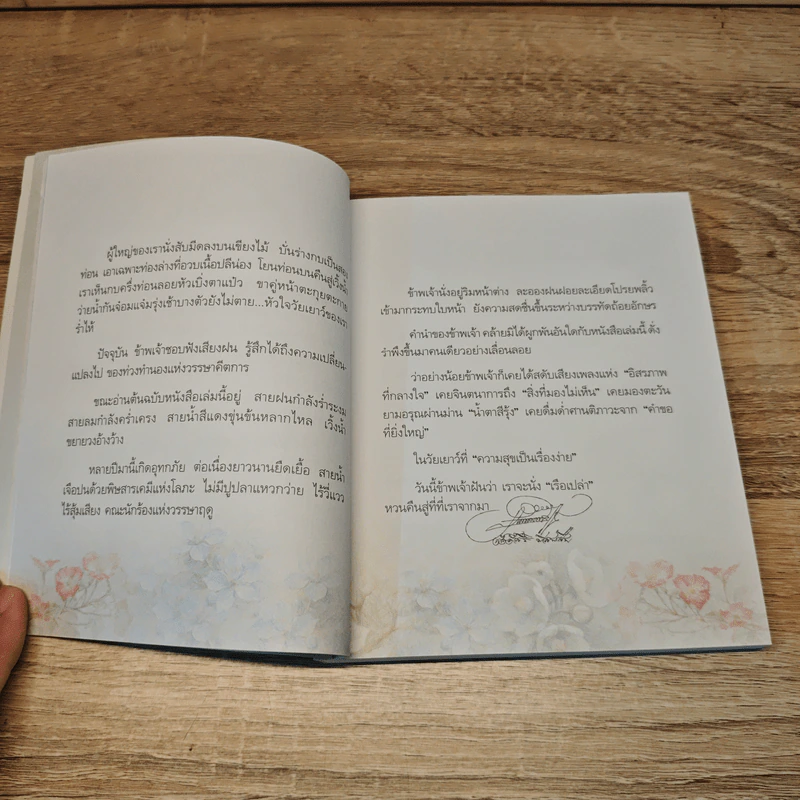 ผู้ใหญ่ของเรานั่งสับมีดลงบนเขียงไม้ บั่นร่างกบเป็นสอง
ท่อน เอาเฉพาะท่องล่างที่อวบเนื้อปลีน่อง โยนท่อนบนคืนสู่เวิ้งน้ำ
เราเห็นกบครึ่งท่อนลอยหัวเบิ่งตาแป๋ว ขาคู่หน้าตะกุยตะกาย
ว่ายน้ำกันจ๋อมแจ๋มรุ่งเช้าบางตัวยังไม่ตาย...หัวใจวัยเยาว์ของเรา
ร่ำไห้
ปัจจุบัน ข้าพเจ้าชอบฟังเสียงฝน รู้สึกได้ถึงความเปลี่ยน-
แปลงไป ของท่วงทำนองแห่งวรรษาคีตการ
ขณะอ่านต้นฉบับหนังสือเล่มนี้อยู่ สายฝนกำลังร่ำระงม
สายลมกำลังคร่ำเครง สายน้ำสีแดงขุ่นข้นหลากไหล เวิ้งน้ำ
ขยายวงอ้างว้าง
หลายปีมานี้เกิดอุทกภัย ต่อเนื่องยาวนานยืดเยื้อ สายน้ำ
เจือปนด้วยพิษสารเคมีแห่งโลภะ ไม่มีปูปลาแหวกว่าย ไร้วี่แวว
ไร้สุ้มเสียง คณะนักร้องแห่งวรรษาฤดู
ข้าพเจ้านั่งอยู่ริมหน้าต่าง ละอองฝนฝอยละเอียดโปรยพลิ้ว
เข้ามากระทบใบหน้า ยังความสดชื่นขึ้นระหว่างบรรทัดถ้อยอักษร
คำนำของข้าพเจ้า คล้ายมิได้ผูกพันอันใดกับหนังสือเล่มนี้ ดั่ง
รำพึงขึ้นมาคนเดียวอย่างเลื่อนลอย
ว่าอย่างน้อยข้าพเจ้าก็เคยได้สดับเสียงเพลงแห่ง “อิสรภาพ
ที่กลางใจ” เคยจินตนาการถึง “สิ่งที่มองไม่เห็น” เคยมองตะวัน
ยามอรุณผ่านม่าน “น้ำตาสีรุ้ง” เคยดื่มด่ำศานติภาวะจาก “คำขอ
ที่ยิ่งใหญ่”
ในวัยเยาว์ที่ “ความสุขเป็นเรื่องง่าย”
วันนี้ข้าพเจ้าฝันว่า เราจะนั่ง “เรือเปล่า”
หวนคืนสู่ที่ที่เราจากมา